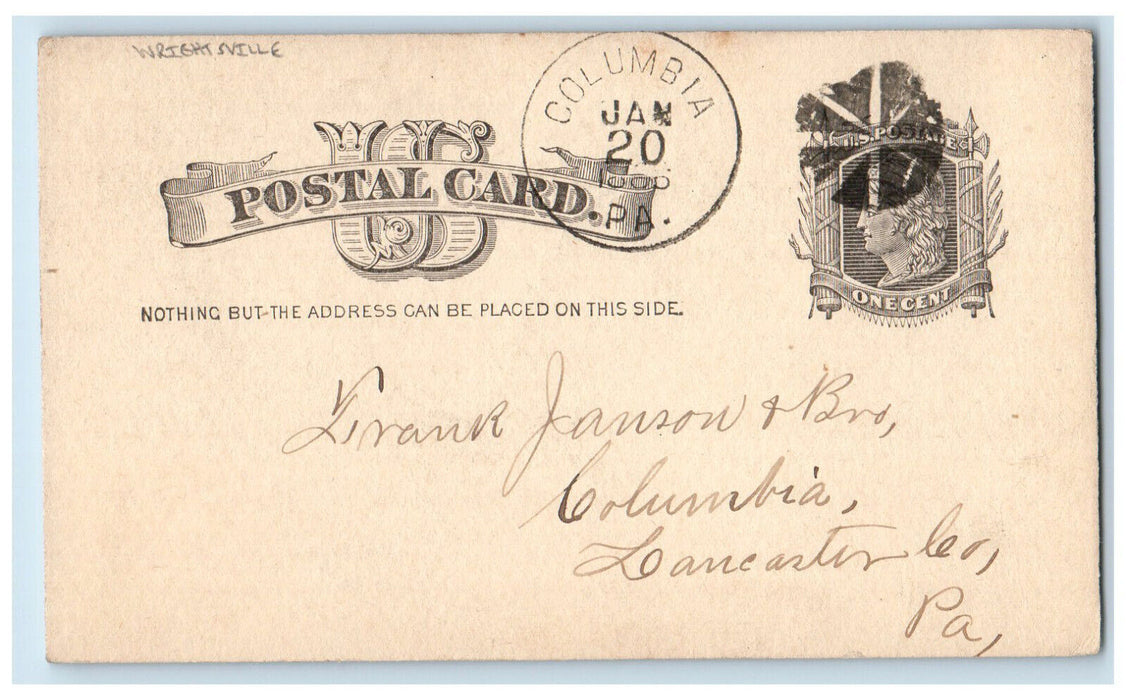 WRIGHTSVILLE
COLUMBIA
JAN
20
PA.
US
POSTAL CARD.
U.S. POSTAGE
ONE CENT
NOTHING BUT THE ADDRESS CAN BE PLACED ON THIS SIDE.
Frank Janson & Bro,
Columbia,
Lancaster Co,
Pa,